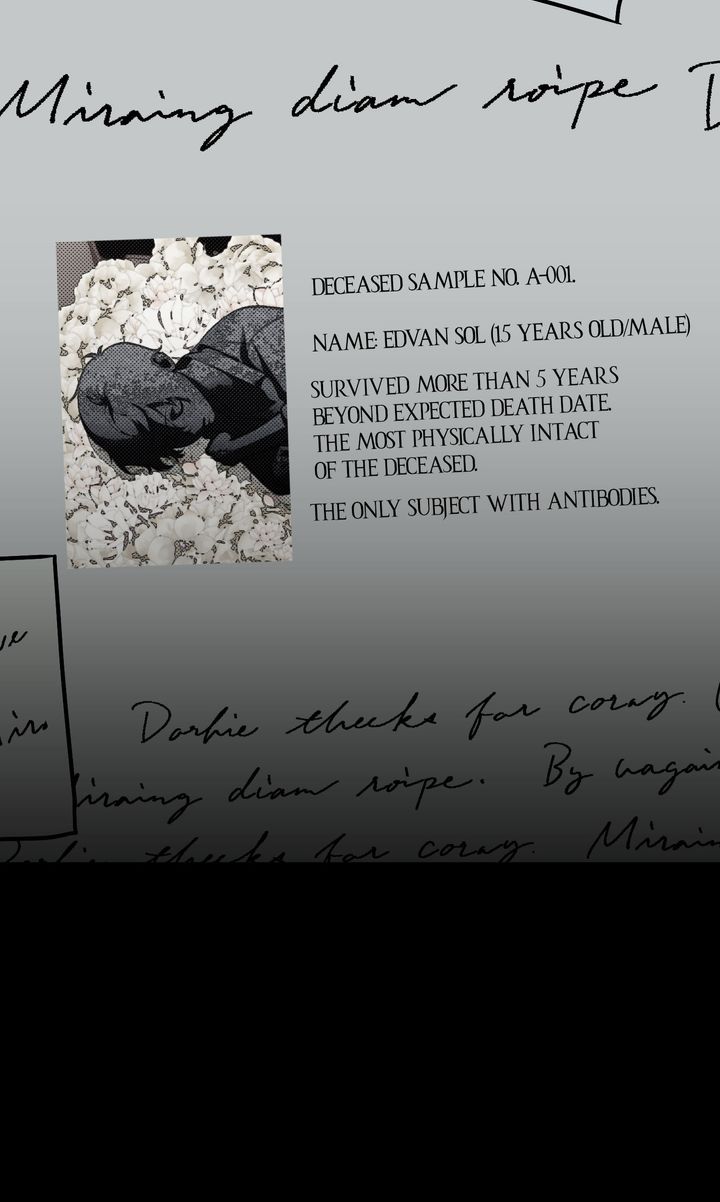 Miraing diam roipe
DECEASED SAMPLE NO. A-001.
NAME: EDVAN SOL (15 YEARS OLD/MALE)
SURVIVED MORE THAN 5 YEARS
BEYOND EXPECTED DEATH DATE.
THE MOST PHYSICALLY INTACT
OF THE DECEASED.
THE ONLY SUBJECT WITH ANTIBODIES.
Dorhie thecks for coray.
diam roipe. By
thecks for coray.